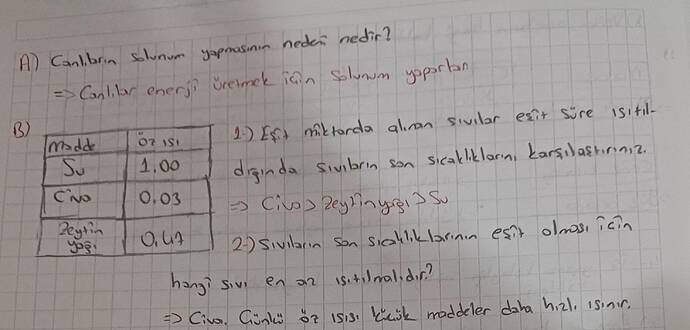 A) Canlıların solunum yapmasının nedeni nedir?
=> Canlılar enerji üretmek için solunum yaparlar
B)
madde öz ısı
Su 1,00
Civa 0,03
Zeytin yağı 0,47
1-) Eşit miktarda alınan sıvılar eşit süre ısıtıl-
dığında sıvıların son sıcaklıklarını karşılaştırınız.
=> Civa > Zeytinyağı > Su
2-) Sıvıların son sıcaklıklarının eşit olması için
hangi sıvı en az ısıtılmalıdır?
=> Civa. Çünkü öz ısısı küçük maddeler daha hızlı ısınır.